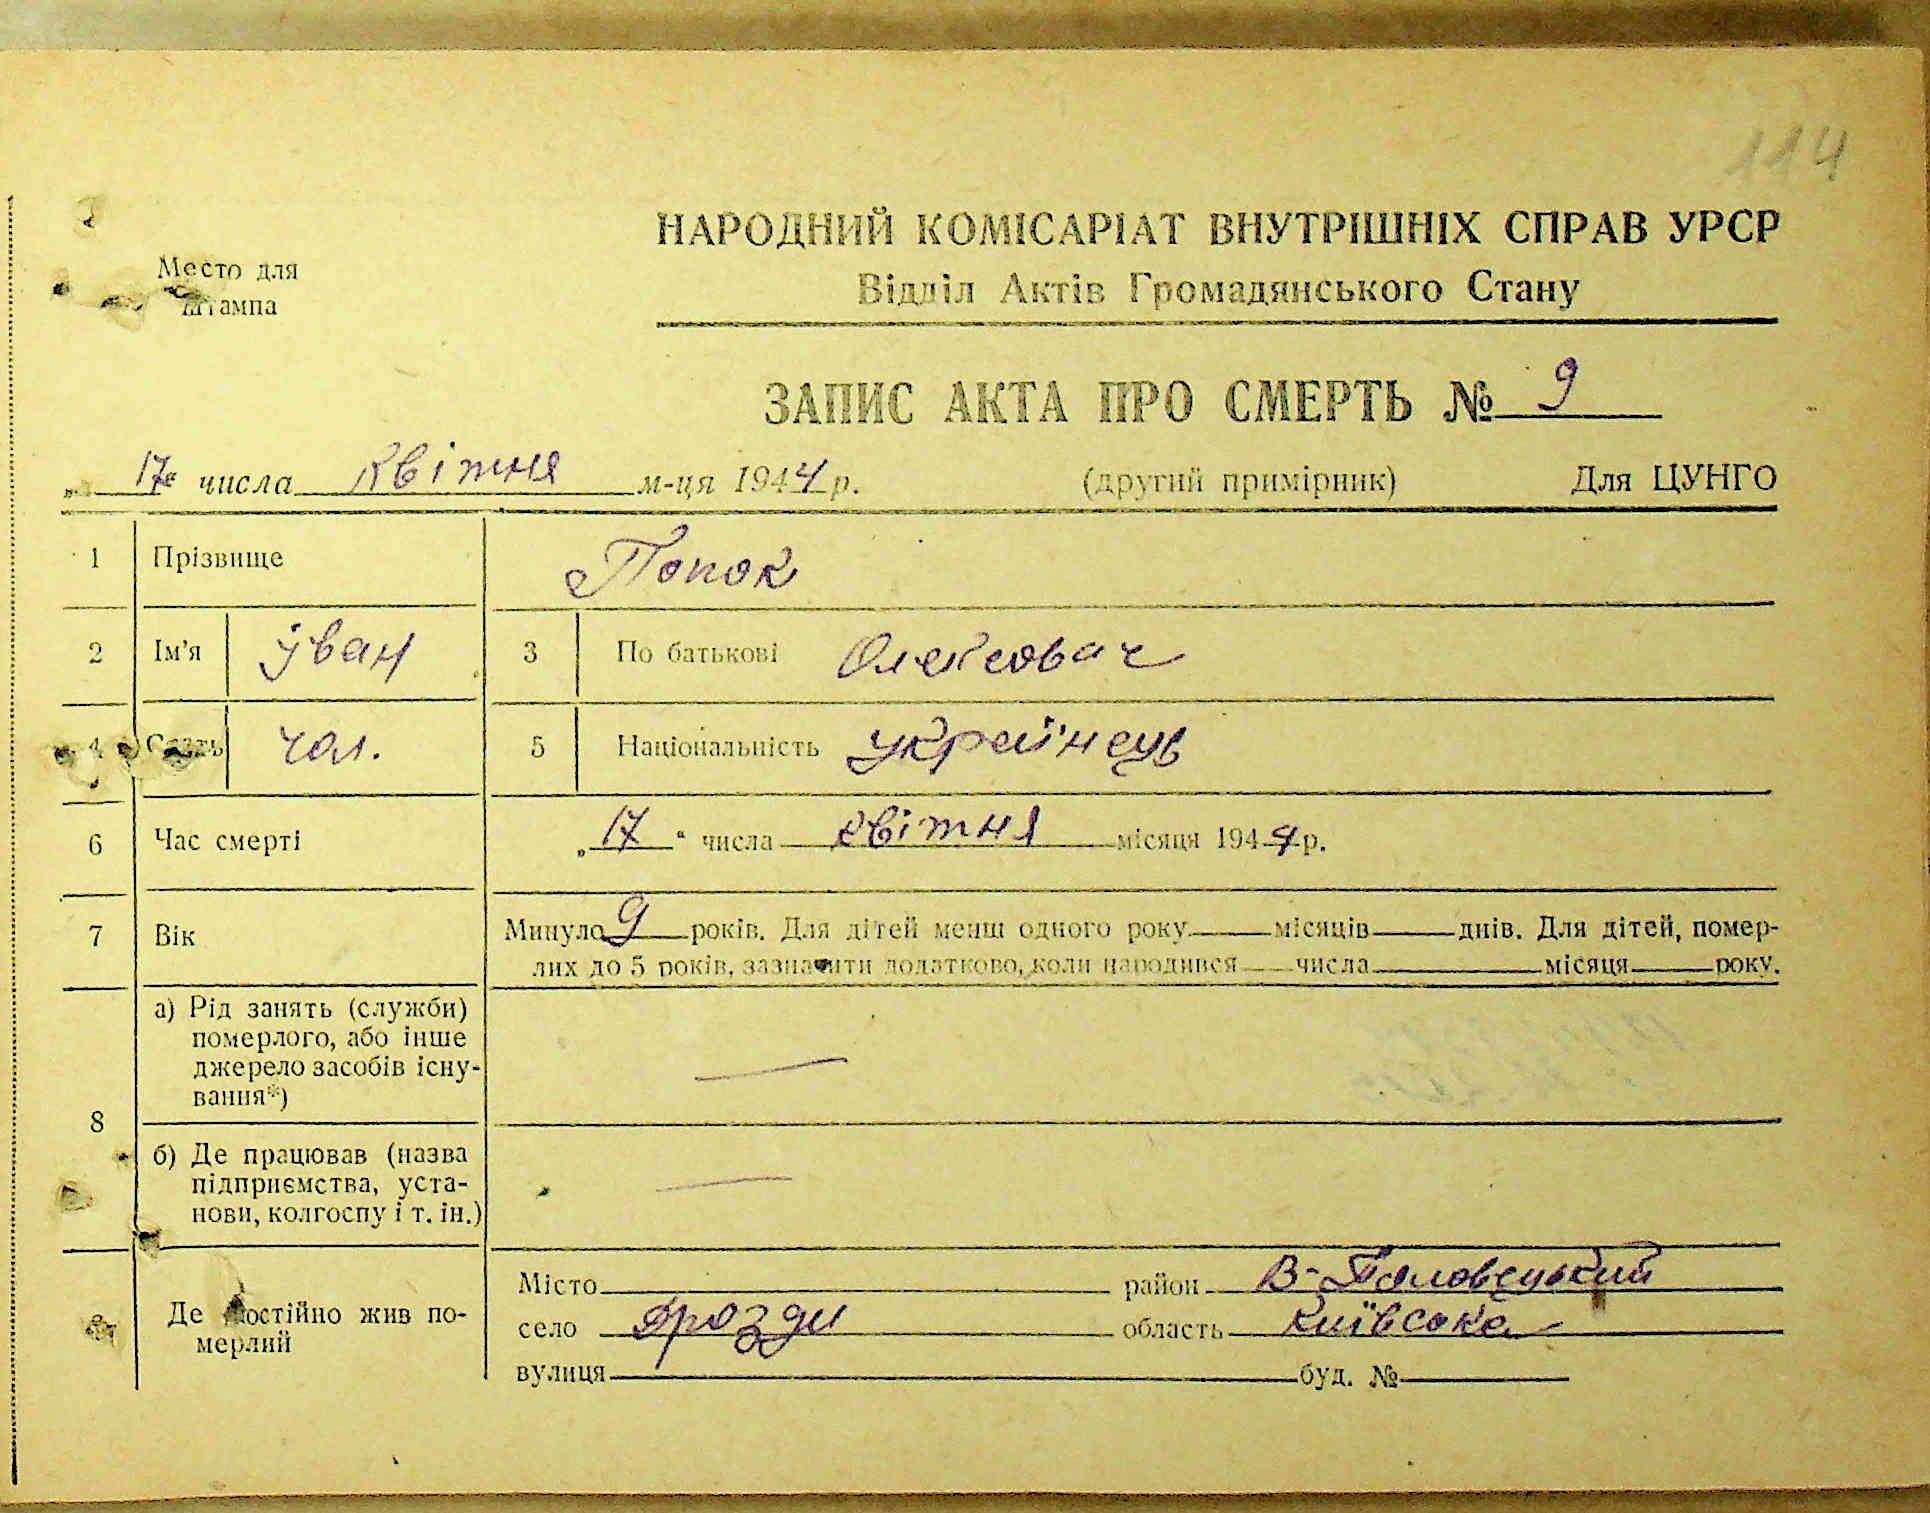 114
Место для
штампа
НАРОДНИЙ КОМІСАРІАТ ВНУТРІШНІХ СПРАВ УРСР
Відділ Актів Громадянського Стану
ЗАПИС АКТА ПРО СМЕРТЬ № 9
„17“ числа квітня м-ця 1944 р. (другий примірник) Для ЦУНГО
1 Прізвище Попок
2 Ім'я іван 3 По батькові Олексович
4 Стать чол. 5 Національність українець
6 Час смерті „17“ числа квітня місяця 1944 р.
7 Вік Минуло 9 років. Для дітей менш одного року місяців днів. Для дітей, помер-
лих до 5 років, зазначити додатково, коли народився числа місяця року.
8 а) Рід занять (служби)
померлого, або інше
джерело засобів існу-
вання*) —
б) Де працював (назва
підприємства, уста-
нови, колгоспу і т. ін.) —
9 Де постійно жив по-
мерлий
Місто район В-Половецький
село Дрозди область Київська
вулиця буд. №